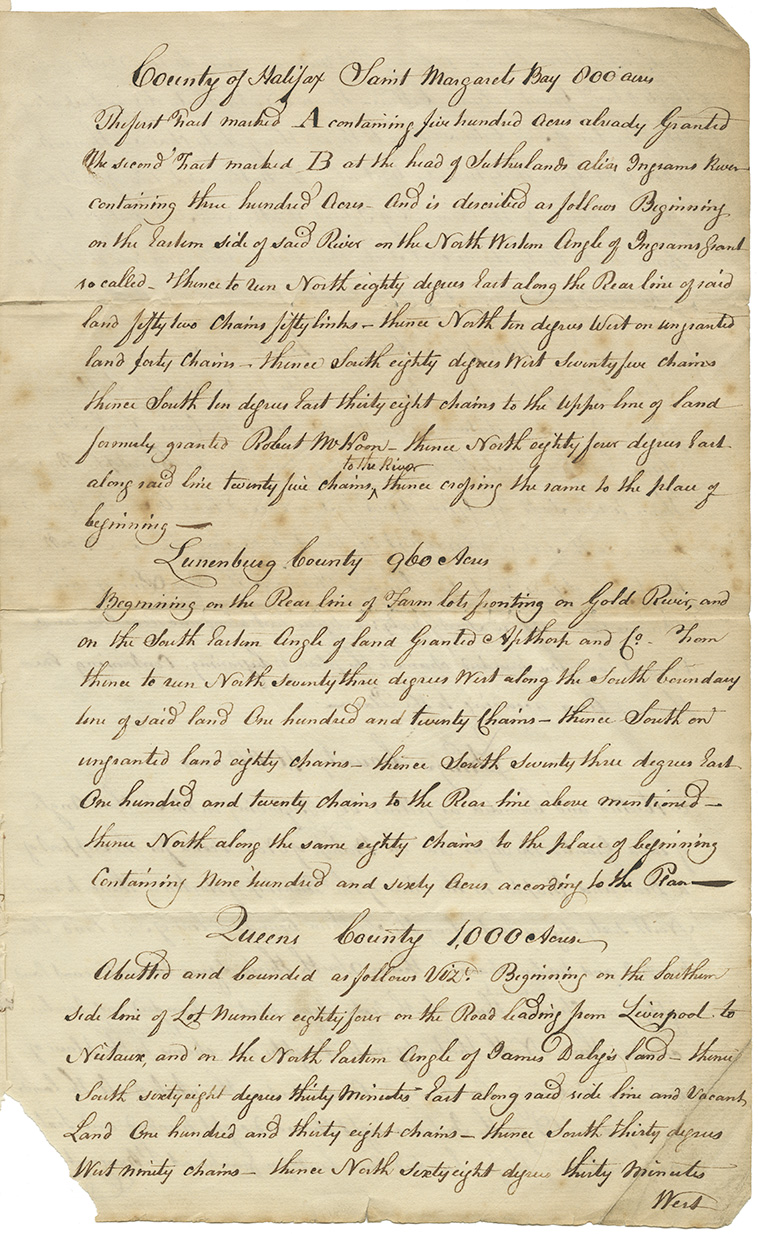 County of Halifax Saint Margarets Bay 800 acres
The first Tract marked A containing five hundred Acres already Granted
The second Tract marked B at the head of Sutherlands alias Ingrams River
containing three hundred Acres - And is described as follows Beginning
on the Eastern side of said River on the North Western Angle of Ingrams Grant
so called - Thence to run North eighty degrees East along the Rear line of said
land fifty two Chains fifty links - thence North ten degrees West on ungranted
land forty Chains - thence South eighty degrees West Seventy five chains
thence South ten degrees East thirty eight chains to the Upper line of land
formerly granted Robert McKoon - thence North eighty four degrees East
to the River
along said line twenty five chains ‸ thence crossing the same to the place of
beginning —
Lunenburg County 960 Acres
Beginning on the Rear line of Farm lots fronting on Gold River, and
on the South Eastern Angle of land Granted Apthorp and Co. - From
thence to run North Seventy three degrees West along the South boundary
line of said land One hundred and twenty Chains - thence South on
ungranted land eighty chains - thence South Seventy three degrees East
One hundred and twenty chains to the Rear line above mentioned -
thence North along the same eighty chains to the place of beginning
Containing Nine hundred and sixty Acres according to the Plan —
Queens County 1,000 Acres
Abutted and bounded as follows Vizt. Beginning on the Southern
side line of Lot Number eighty four on the Road leading from Liverpool to
Nictaux, and on the North Eastern Angle of James Daly's land - thence
South sixty eight degrees thirty Minutes East along said side line and Vacant
Land One hundred and thirty eight chains - thence South thirty degrees
West ninety chains - thence North sixty eight degree thirty Minutes
West